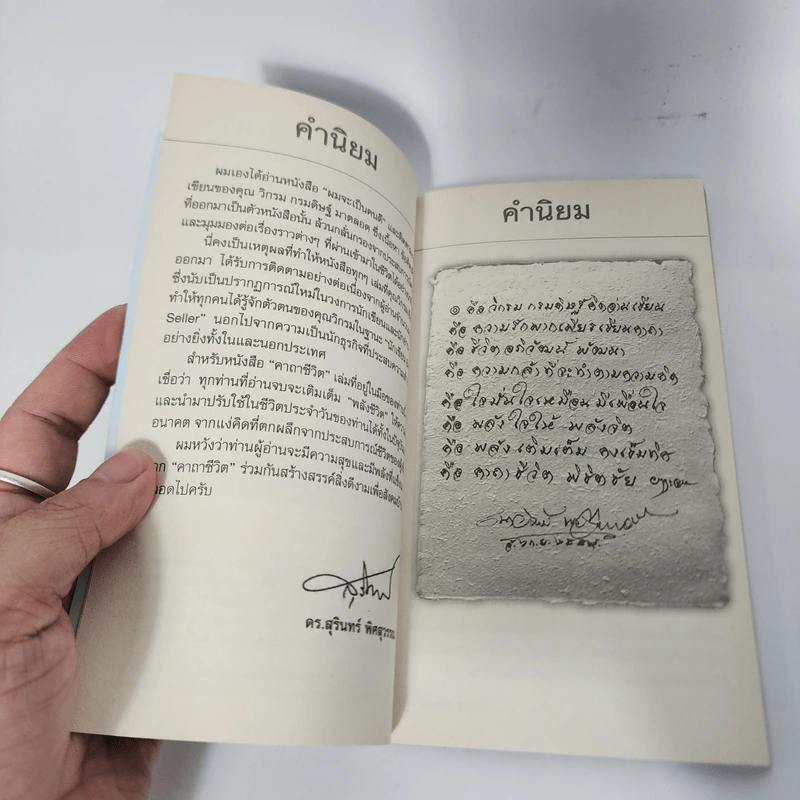 คำนิยม
ผมเองได้อ่านหนังสือ "ผมจะเป็นคนดี"
เขียนของคุณ วิกรม กรมดิษฐ์ มาตลอด ซึ่งเนื้อหา
ที่ออกมาเป็นตัวหนังสือนั้น ล้วนกลั่นกรองจากประสบการณ์
และมุมมองต่อเรื่องราวต่างๆ ที่ผ่านเข้ามาในชีวิตได้อย่าง
นี่คงเป็นเหตุผลที่ทำให้หนังสือทุกๆ เล่มที่คุณวิกรม
ออกมา ได้รับการติดตามอย่างต่อเนื่องจากผู้อ่าน
ซึ่งนับเป็นปรากฏการณ์ใหม่ในวงการนักเขียนและ
ทำให้ทุกคนได้รู้จักตัวตนของคุณวิกรมในฐานะ "นักเขียน
Seller" นอกไปจากความเป็นนักธุรกิจที่ประสบความ
อย่างยิ่งทั้งในและนอกประเทศ
สำหรับหนังสือ "คาถาชีวิต" เล่มที่อยู่ในมือของท่าน
เชื่อว่า ทุกท่านที่อ่านจบจะเติมเต็ม "พลังชีวิต"
และนำมาปรับใช้ในชีวิตประจำวันของท่านได้ทั้งใน
อนาคต จากแง่คิดที่ตกผลึกจากประสบการณ์ชีวิตของ
ผมหวังว่าท่านผู้อ่านจะมีความสุขและมีพลังที่
จาก "คาถาชีวิต" ร่วมกันสร้างสรรค์สิ่งดีงามเพื่อสังคม
ตลอดไปครับ
ดร.สุรินทร์ พิศสุวรรณ
คำนิยม
๑ คือ วิกรม กรมดิษฐ์ คิดอ่านเขียน
คือ ความรักพากเพียรเขียนคาถา
คือ ชีวิต อภิวัฒน์ พัฒนา
คือ ความกล้าที่จะทำตามความคิด
คือ ใจมั่นใจเหมือนมีเพื่อนใจ
คือ พลังใจให้ พลังจิต
คือ พลังเติมเต็ม คงเข้มทิศ
คือ คาถาชีวิต พิชิตชัย